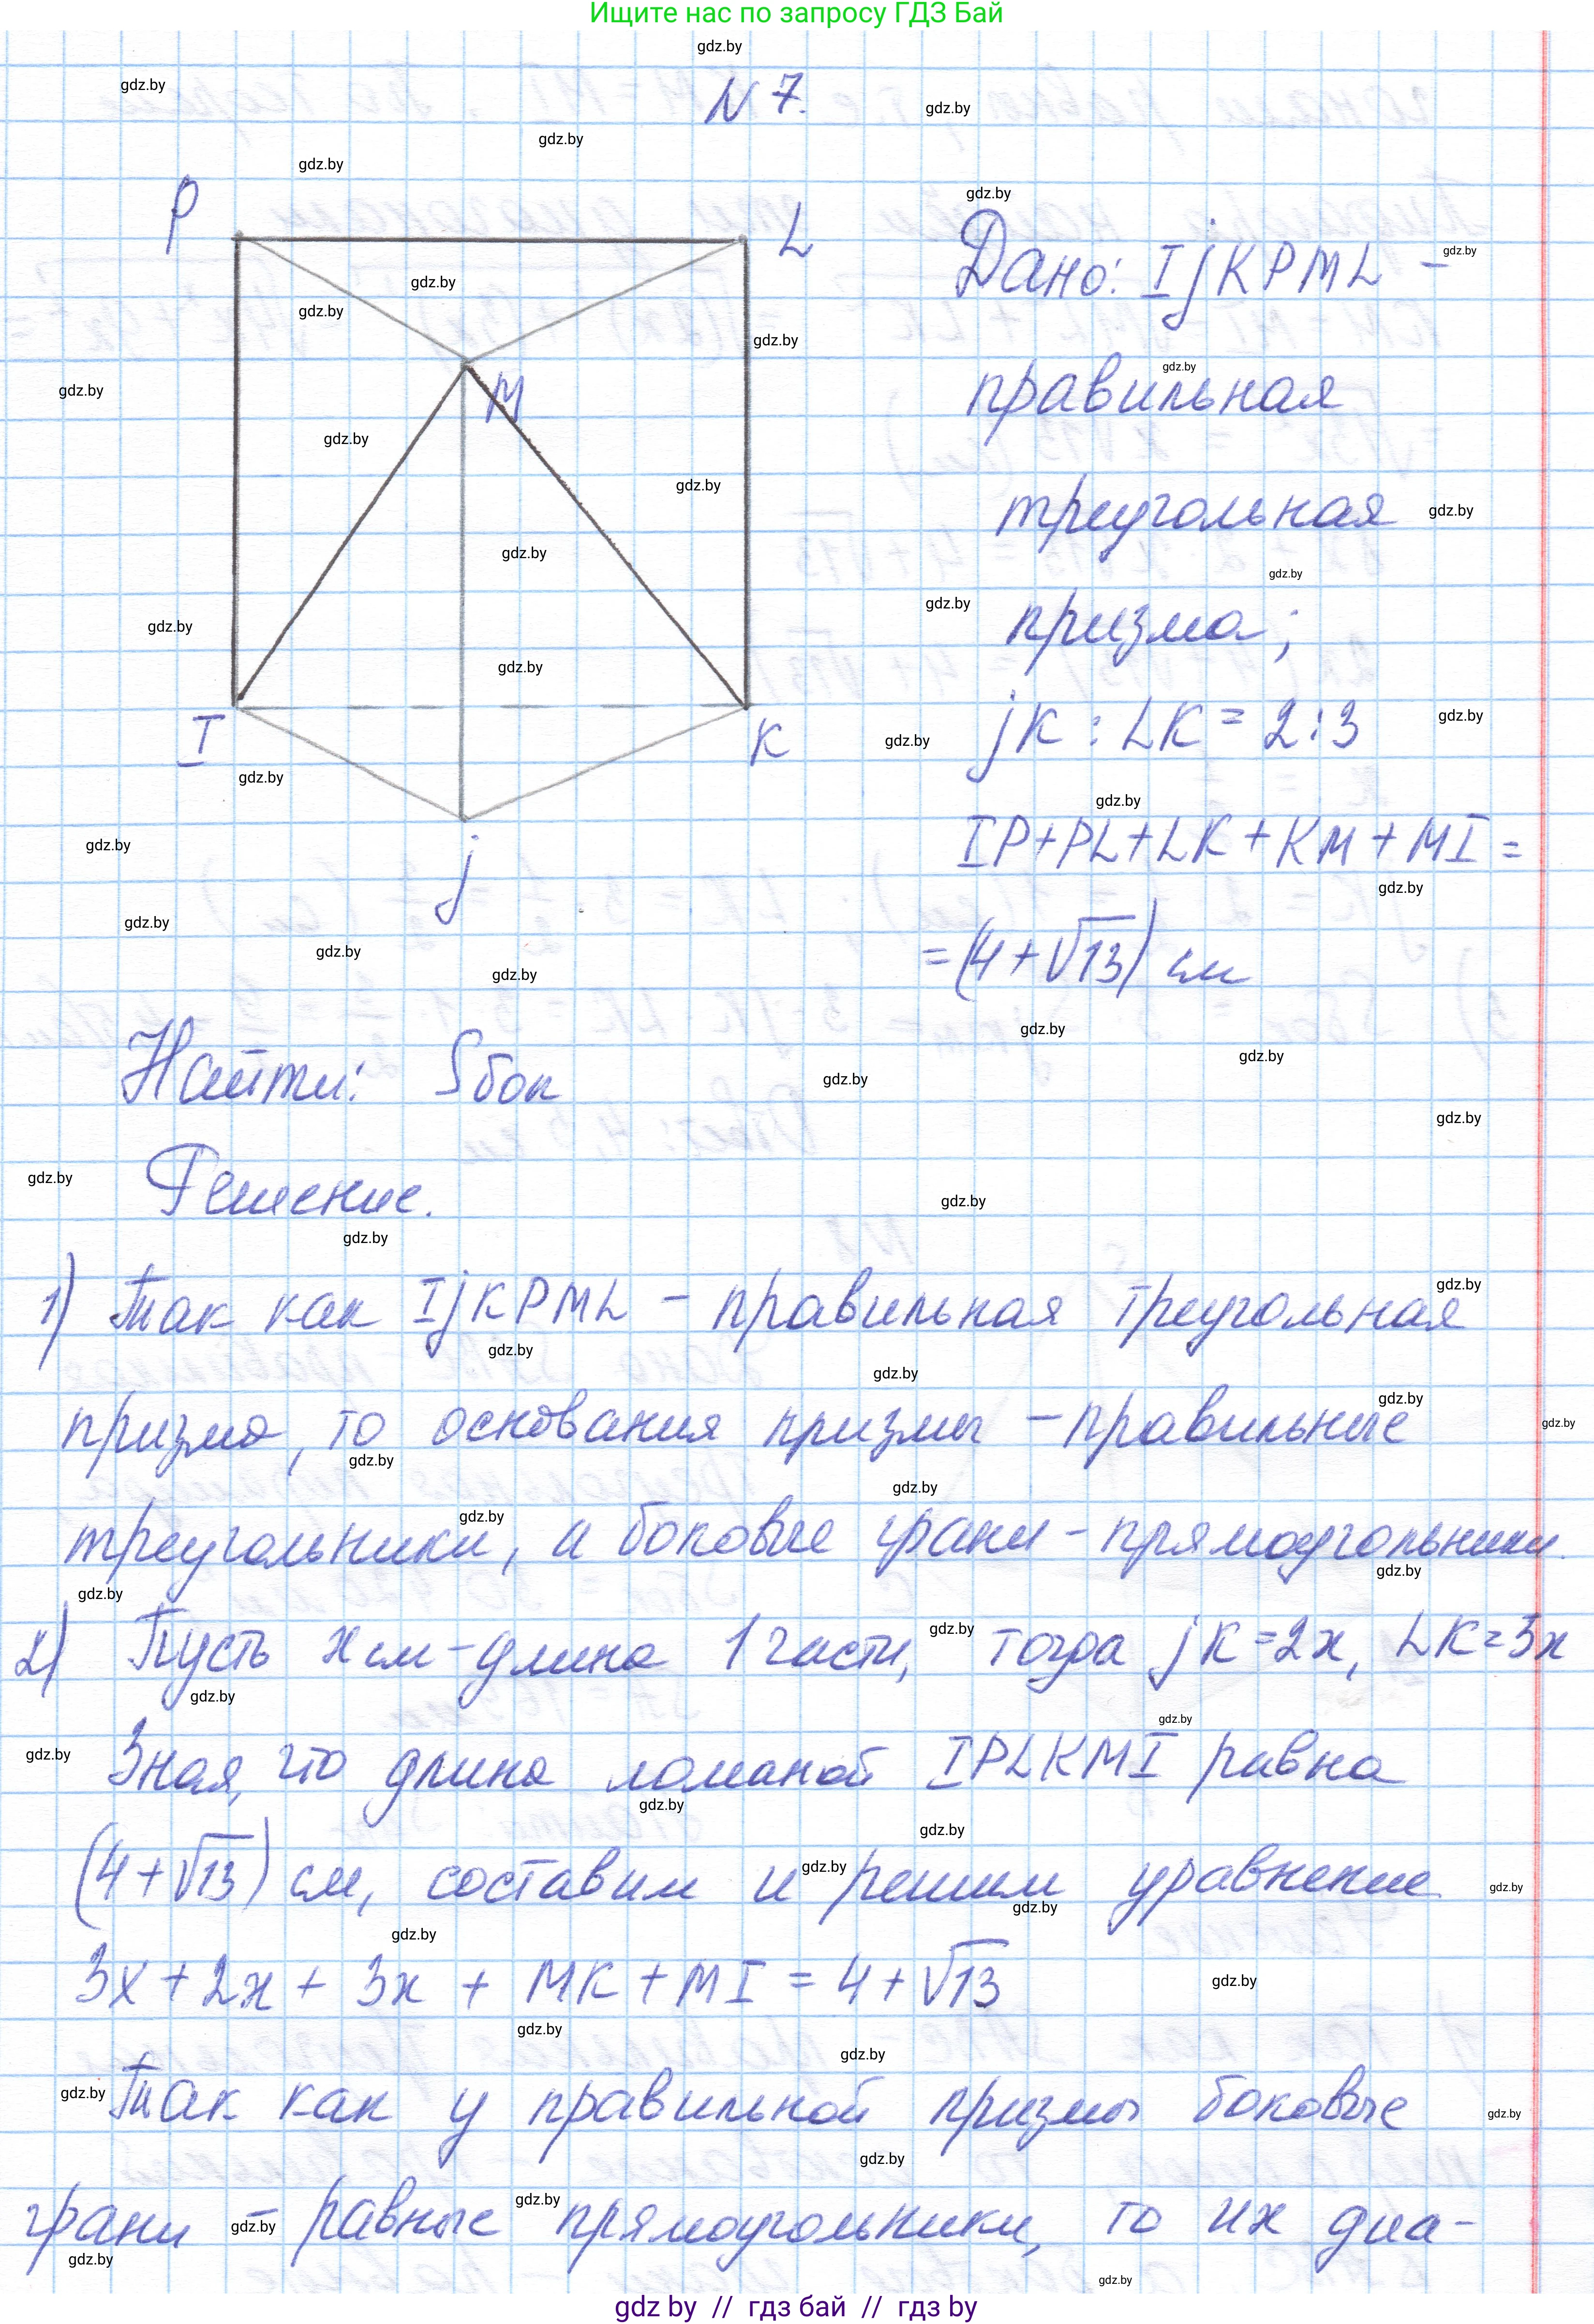 Ищите нас по запросу ГДЗ Бай
N 7.
P
L
M
I
K
j
Дано: IjKPML –
правильная
треугольная
призма;
jK : LK = 2:3
IP+PL+LK+KM+MI =
=(4+√13) см
Найти: Sбок
Решение.
1) Так как IjKPML – правильная треугольная
призма, то основания призмы – правильные
треугольники, а боковые грани – прямоугольники.
2) Пусть x см – длина 1 части, тогда jK=2x, LK=3x
Зная, что длина ломаной IPLKMI равна
(4+√13) см, составим и решим уравнение
3x+2x+3x+MK+MI=4+√13
Так как у правильной призмы боковые
грани – равные прямоугольники, то их диа-
gdz by // гдз бай // гдз by